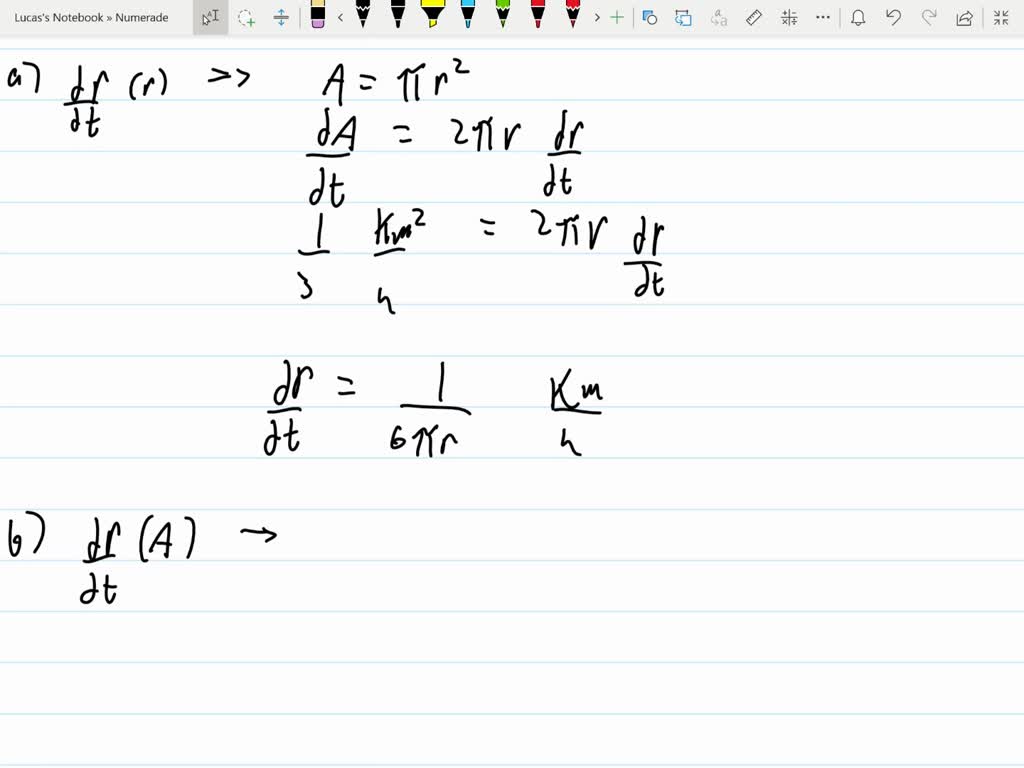 Lucas's Notebook » Numerade
a) dr/dt (r) >> A = πr²
dA/dt = 2πr dr/dt
1/3 Km²/h = 2πr dr/dt
dr/dt = 1/6πr Km/h
b) dr/dt (A) →